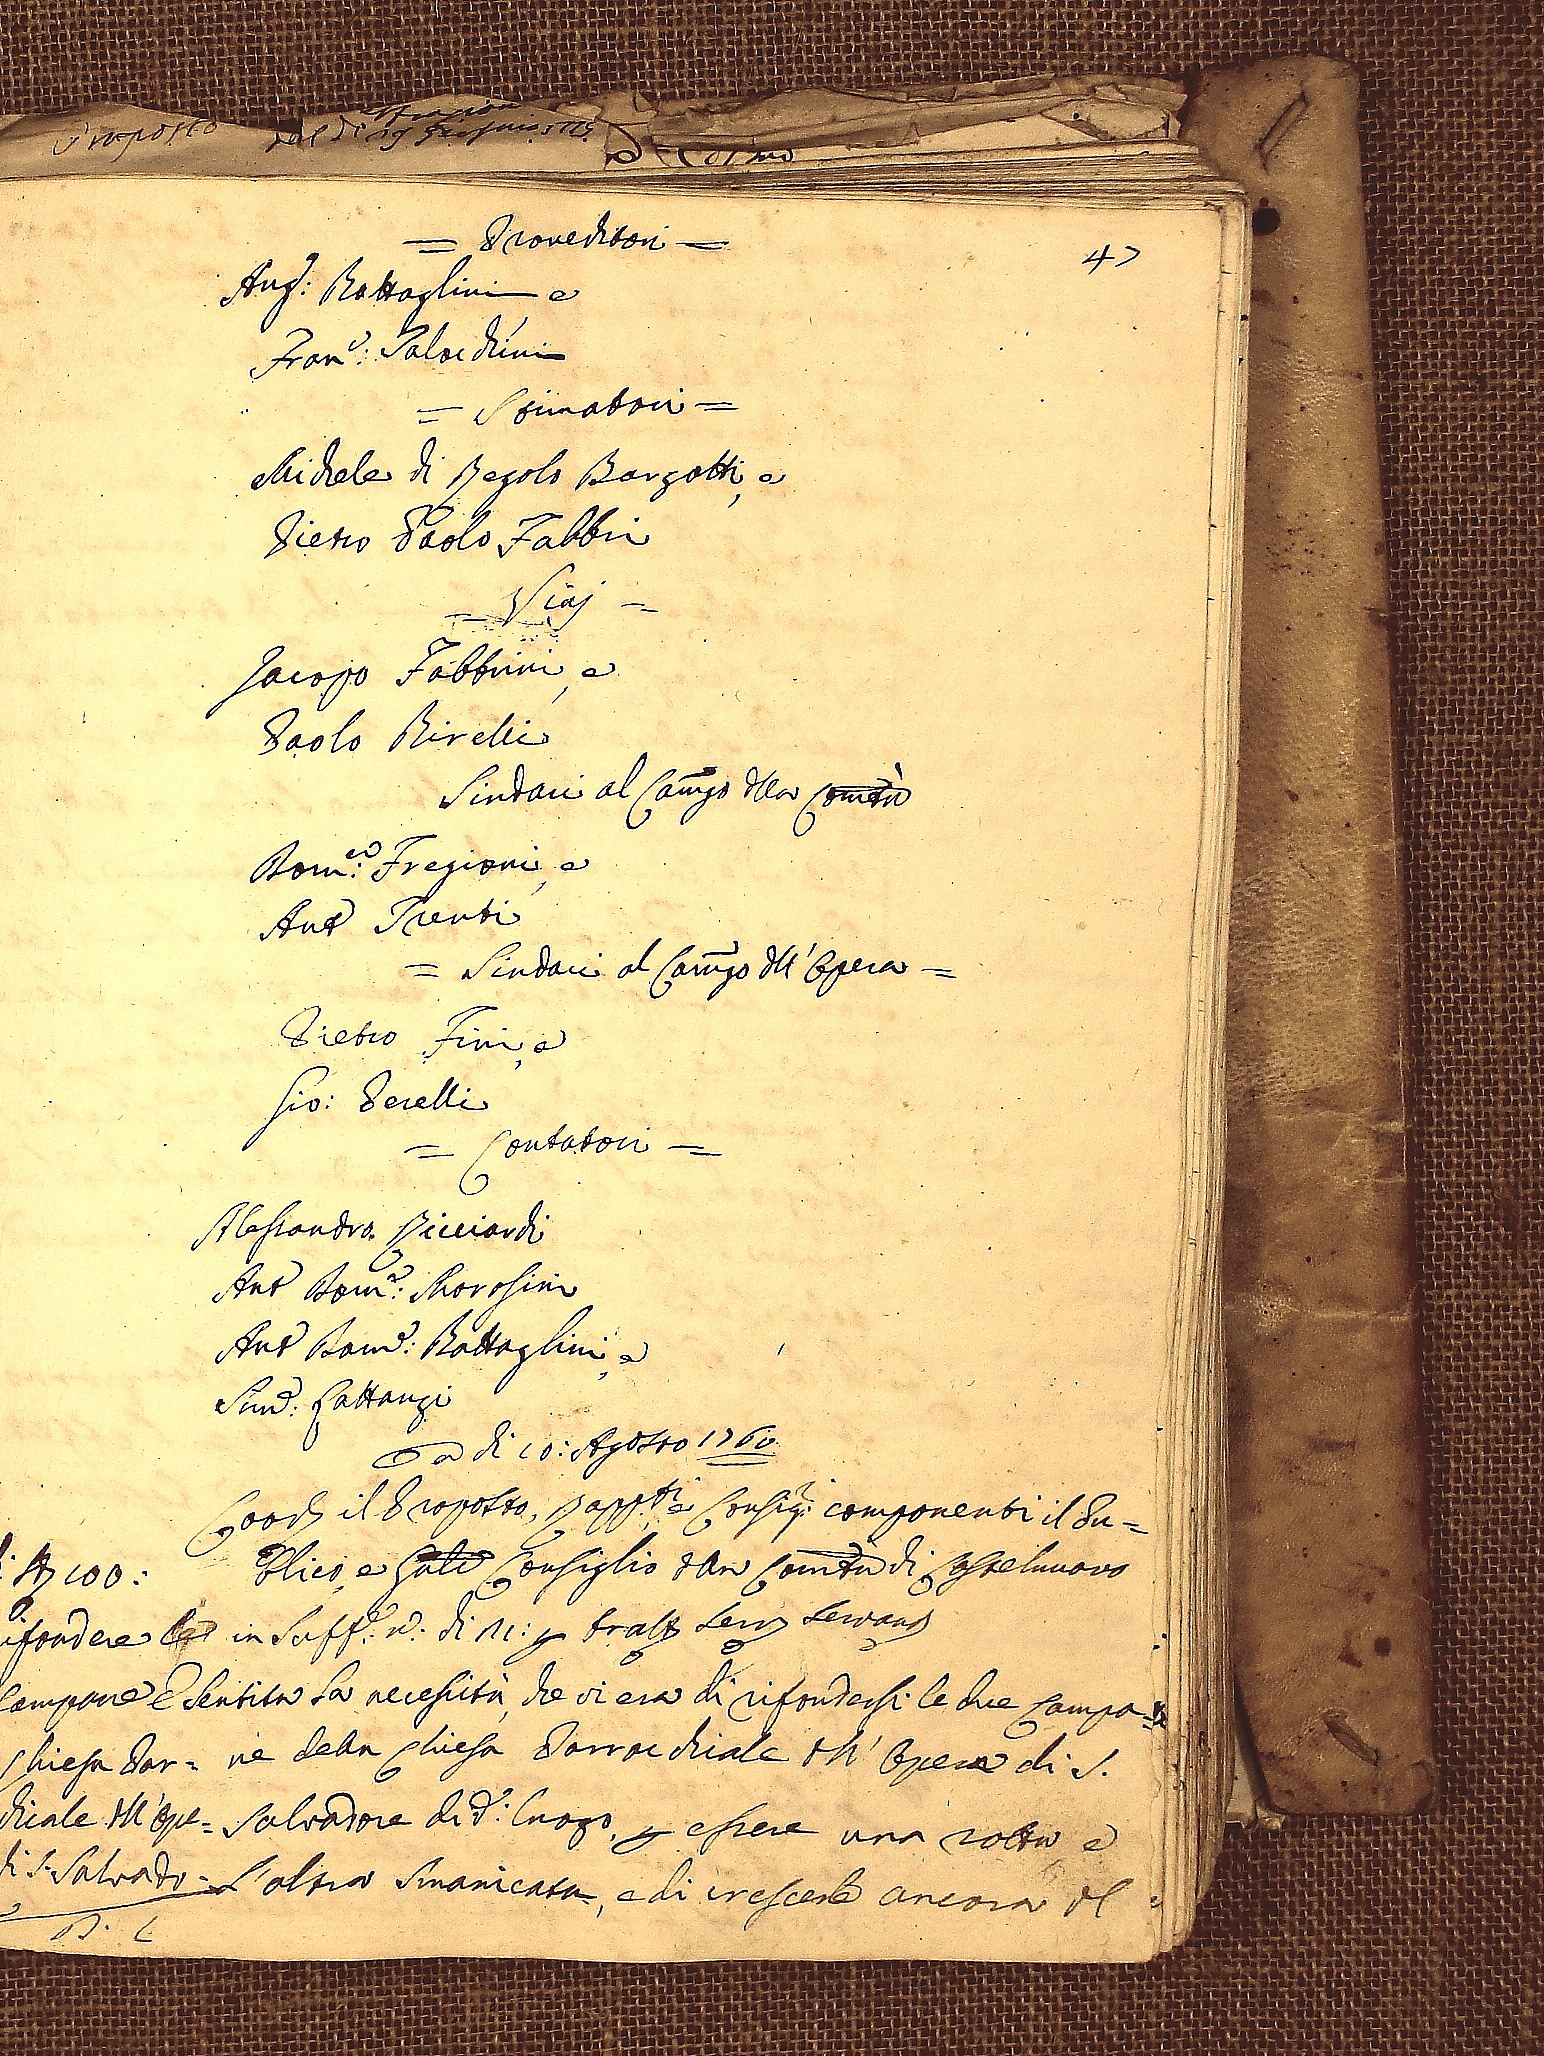 Proposto
47
= Proveditori =
Ang: Battaglini e
Fran: Paladini
= Stimatori =
Michele di Regolo Bargotti, e
Pietro Paolo Fabbri
= Viaj =
Jacopo Fabbrini, e
Paolo Birelli
Sindaci al Camgo dlla Comtà
Domco: Fregioni, e
Ant Trenti
= Sindaci al Camgo dll' Opera =
Pietro Fini, e
Gio: Perelli
= Contatori =
Alessandro Ricciardi
Ant Domo: Morosini
Ant Domo: Battaglini, e
Simo: Gattanzi
a di 10: Agosto 1760
il Proposto, Rappti e Consigi: componenti il Pu=
100: blico, e Gnle Consiglio dlla Comtà di Castelnuovo
rifondere in Suff: no: di 11: p tratt
Campane Sentita la necessità, che vi era di rifondersi le due Campa=
Chiesa Par= ne della Chiesa Parrochiale dll' Opera di S.
chiale dll' Ope= Salvadore di do: luogo, p essere una rotta e
di S. Salvado= l'altra smanicata, e di crescerle ancora